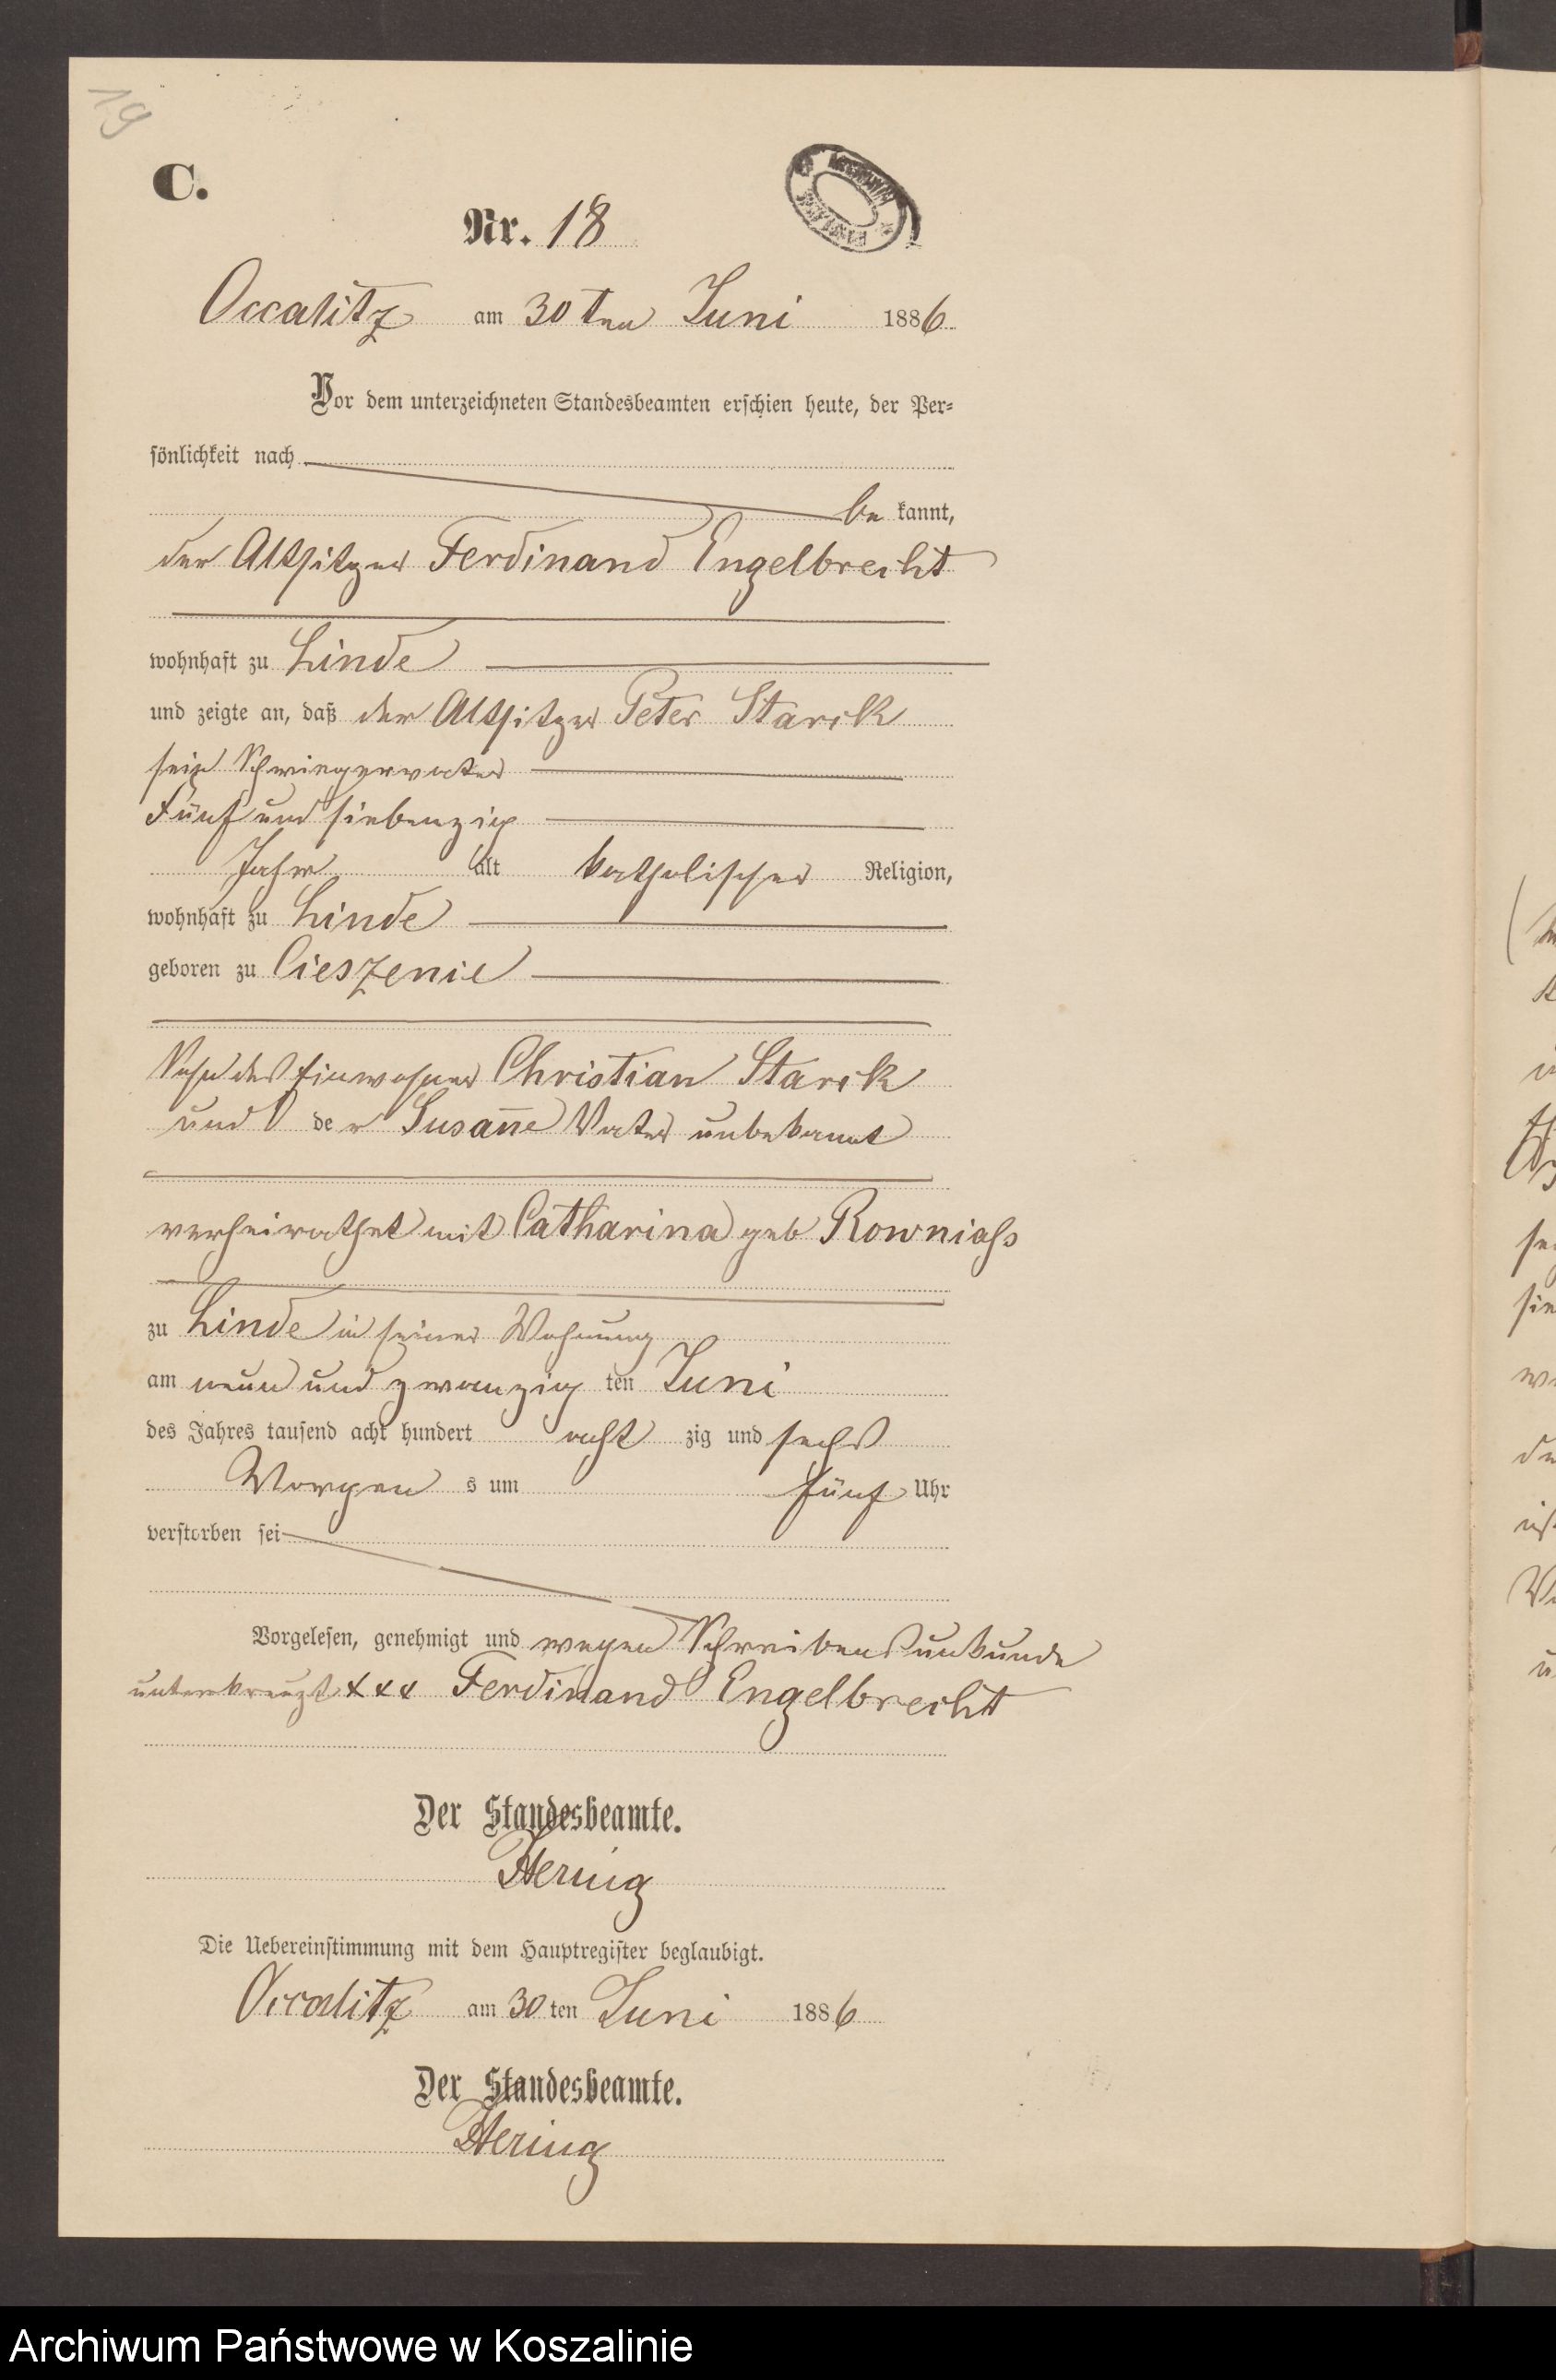 19
C.
Nr. 18
Occalitz am 30ten Juni 1886.
Vor dem unterzeichneten Standesbeamten erschien heute, der Per-
sönlichkeit nach
be kannt,
der Altsitzer Ferdinand Engelbrecht
wohnhaft zu Linde
und zeigte an, daß der Altsitzer Peter Starck
sein Schwiegervater
Fünf und siebenzig
Jahre alt katholischer Religion,
wohnhaft zu Linde
geboren zu Cieszenie
Sohn des Einwohner Christian Starck
und der Susan̄e Vater unbekannt
verheirathet mit Catharina geb Rowniahs
zu Linde in seiner Wohnung
am neun und zwanzig ten Juni
des Jahres tausend acht hundert acht zig und sechs
Morgen s um fünf Uhr
verstorben sei
Vorgelesen, genehmigt und wegen Schreibensunkunde
unterkreuzt xxx Ferdinand Engelbrecht
Der Standesbeamte.
Hering
Die Uebereinstimmung mit dem Hauptregister beglaubigt.
Occalitz am 30 ten Juni 1886
Der Standesbeamte.
Hering
Archiwum Państwowe w Koszalinie